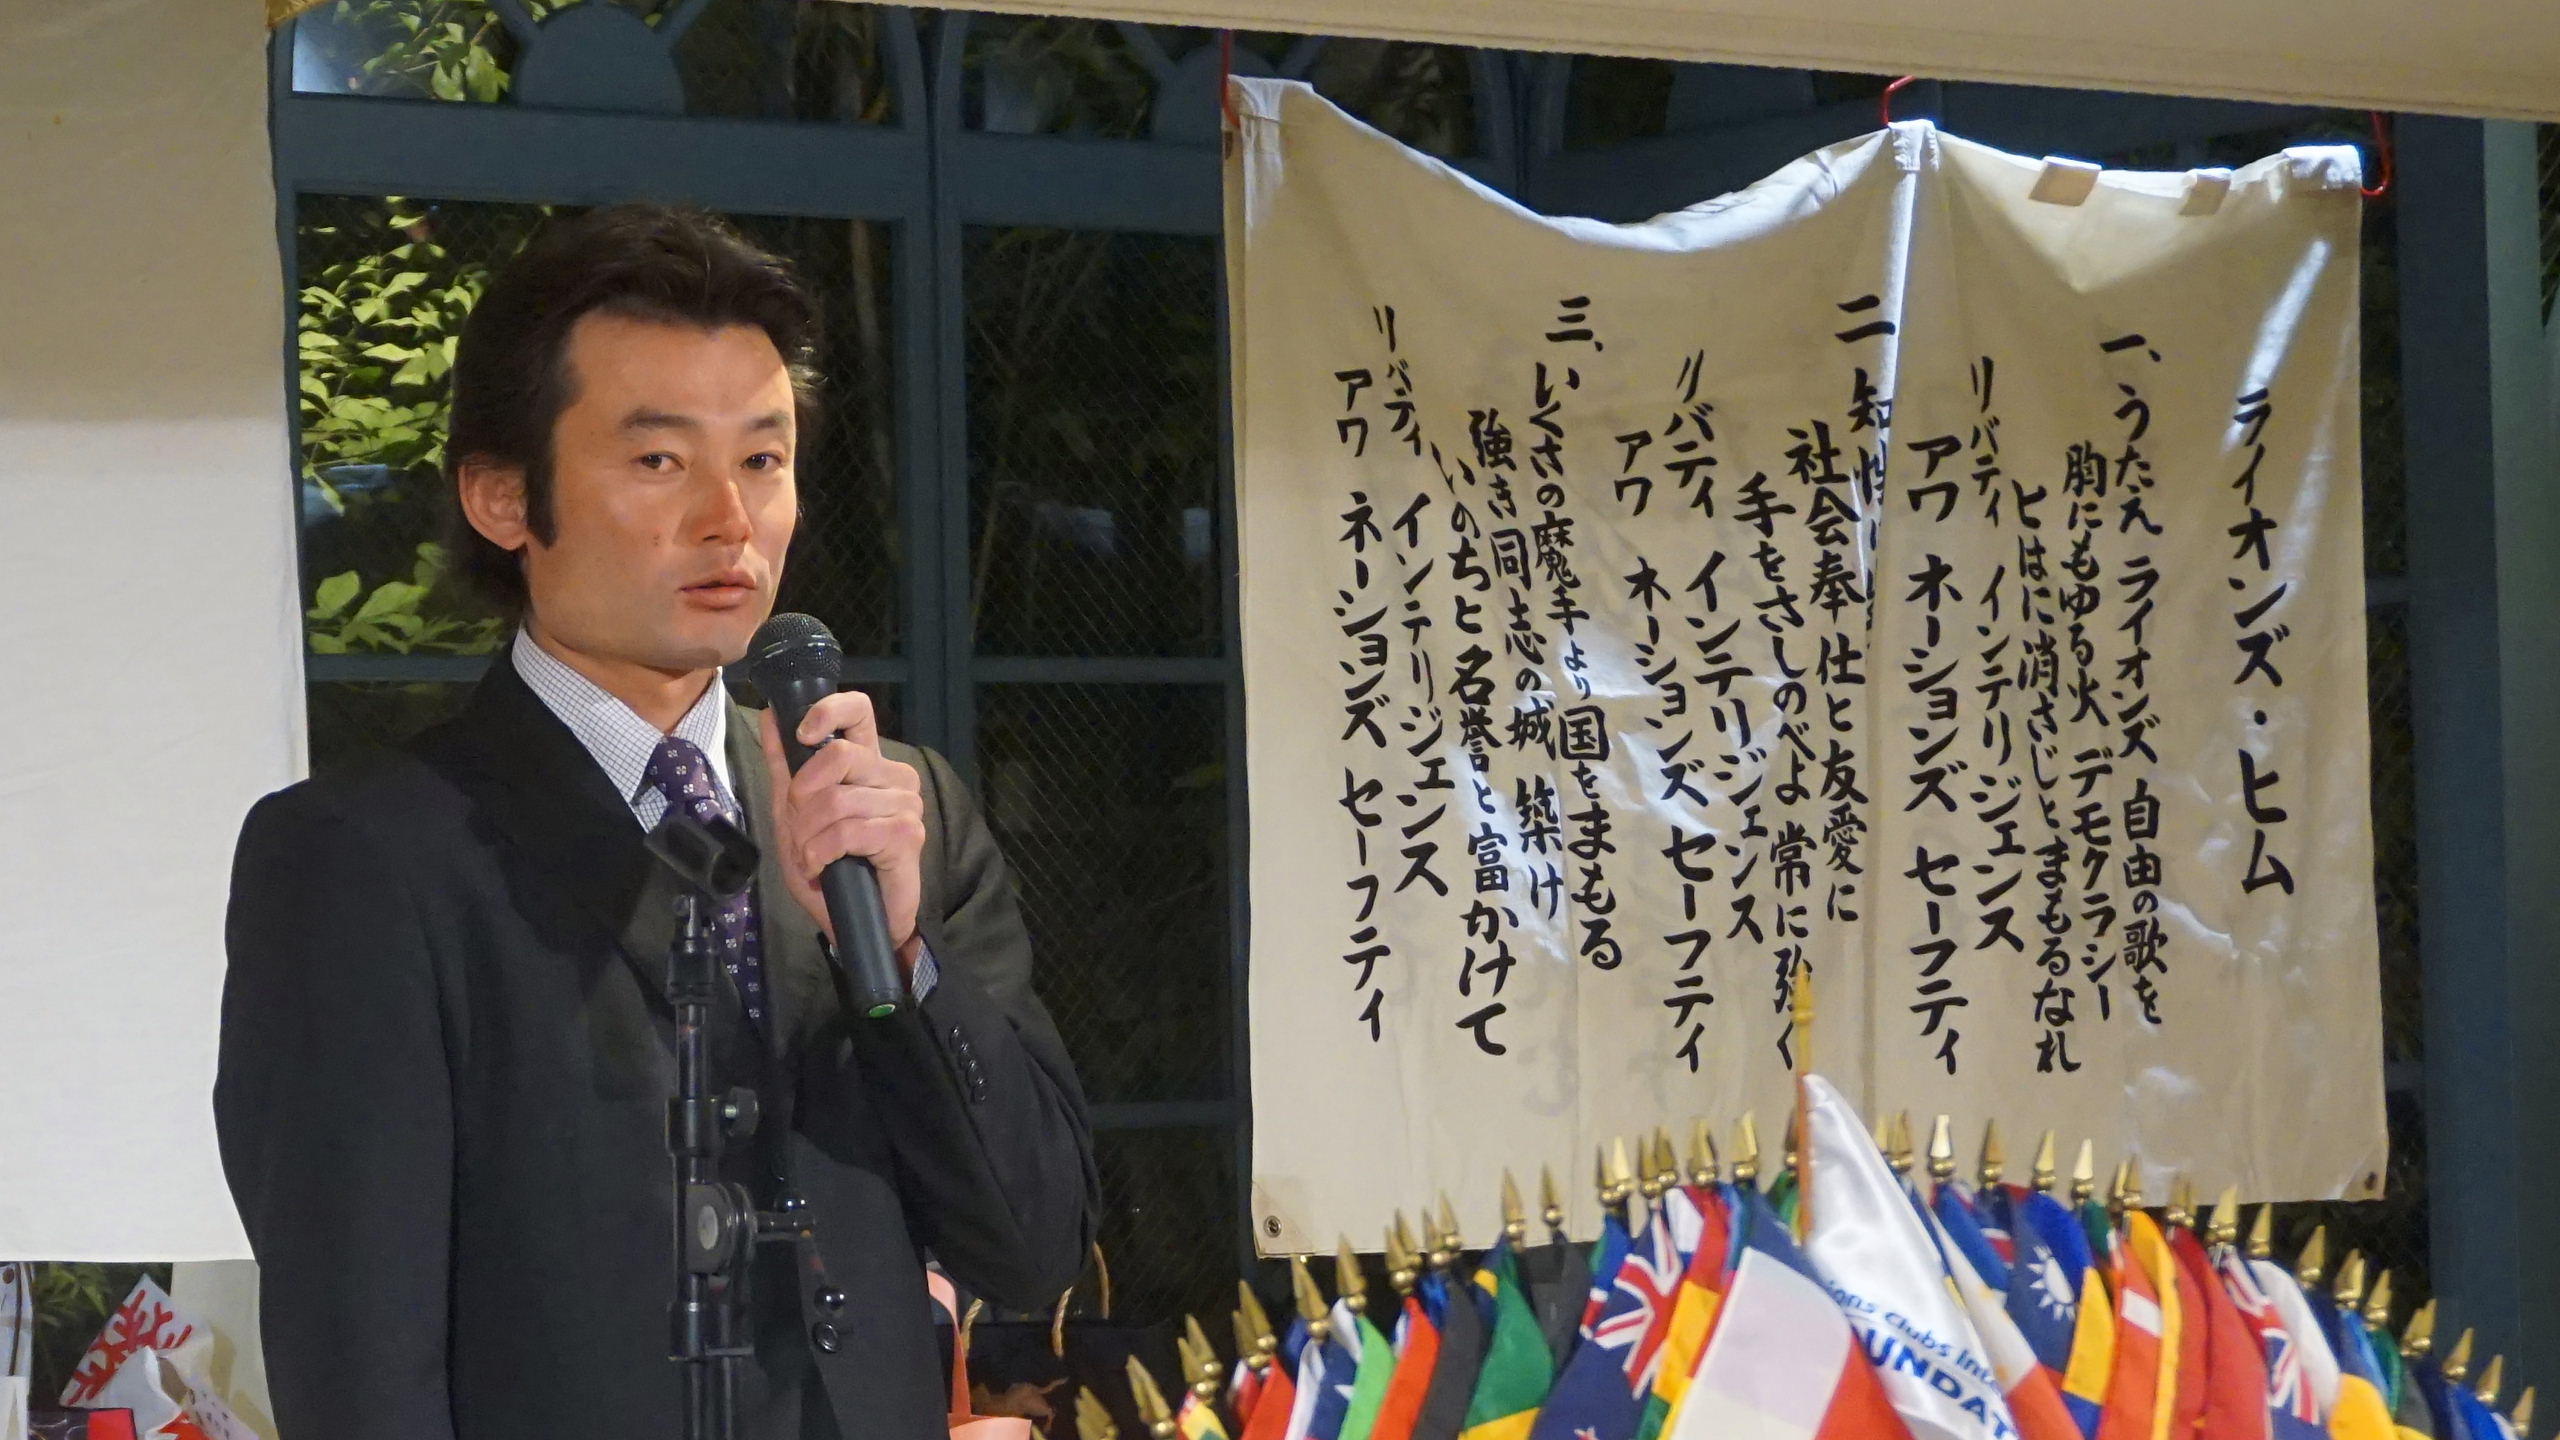 ライオンズ・ヒム
一、うたえ ライオンズ 自由の歌を
胸にもゆる火 デモクラシー
ヒはに消さじとまもるなれ
リバティ インテリジェンス
アワ ネーションズ セーフティ
二 知性
社会奉仕と友愛に
手をさしのべよ 常に強く
リバティ インテリジェンス
アワ ネーションズ セーフティ
三、いくさの魔手より国をまもる
強き同志の城 築け
いのちと名誉と富かけて
リバティ インテリジェンス
アワ ネーションズ セーフティ
ions clubs Inte
UNDAT